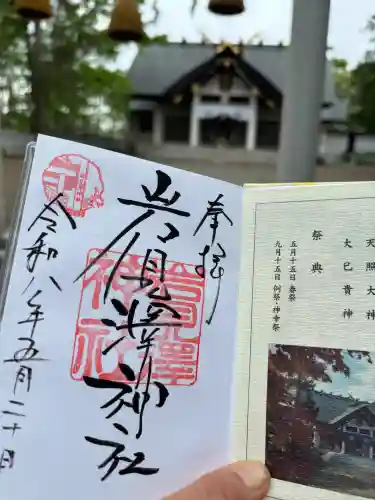 奉拝
岩見澤神社
岩見澤神社
令和八年五月二十日
天照大神
大己貴神
祭典
五月十五日 春祭
九月十五日 例祭・神幸祭